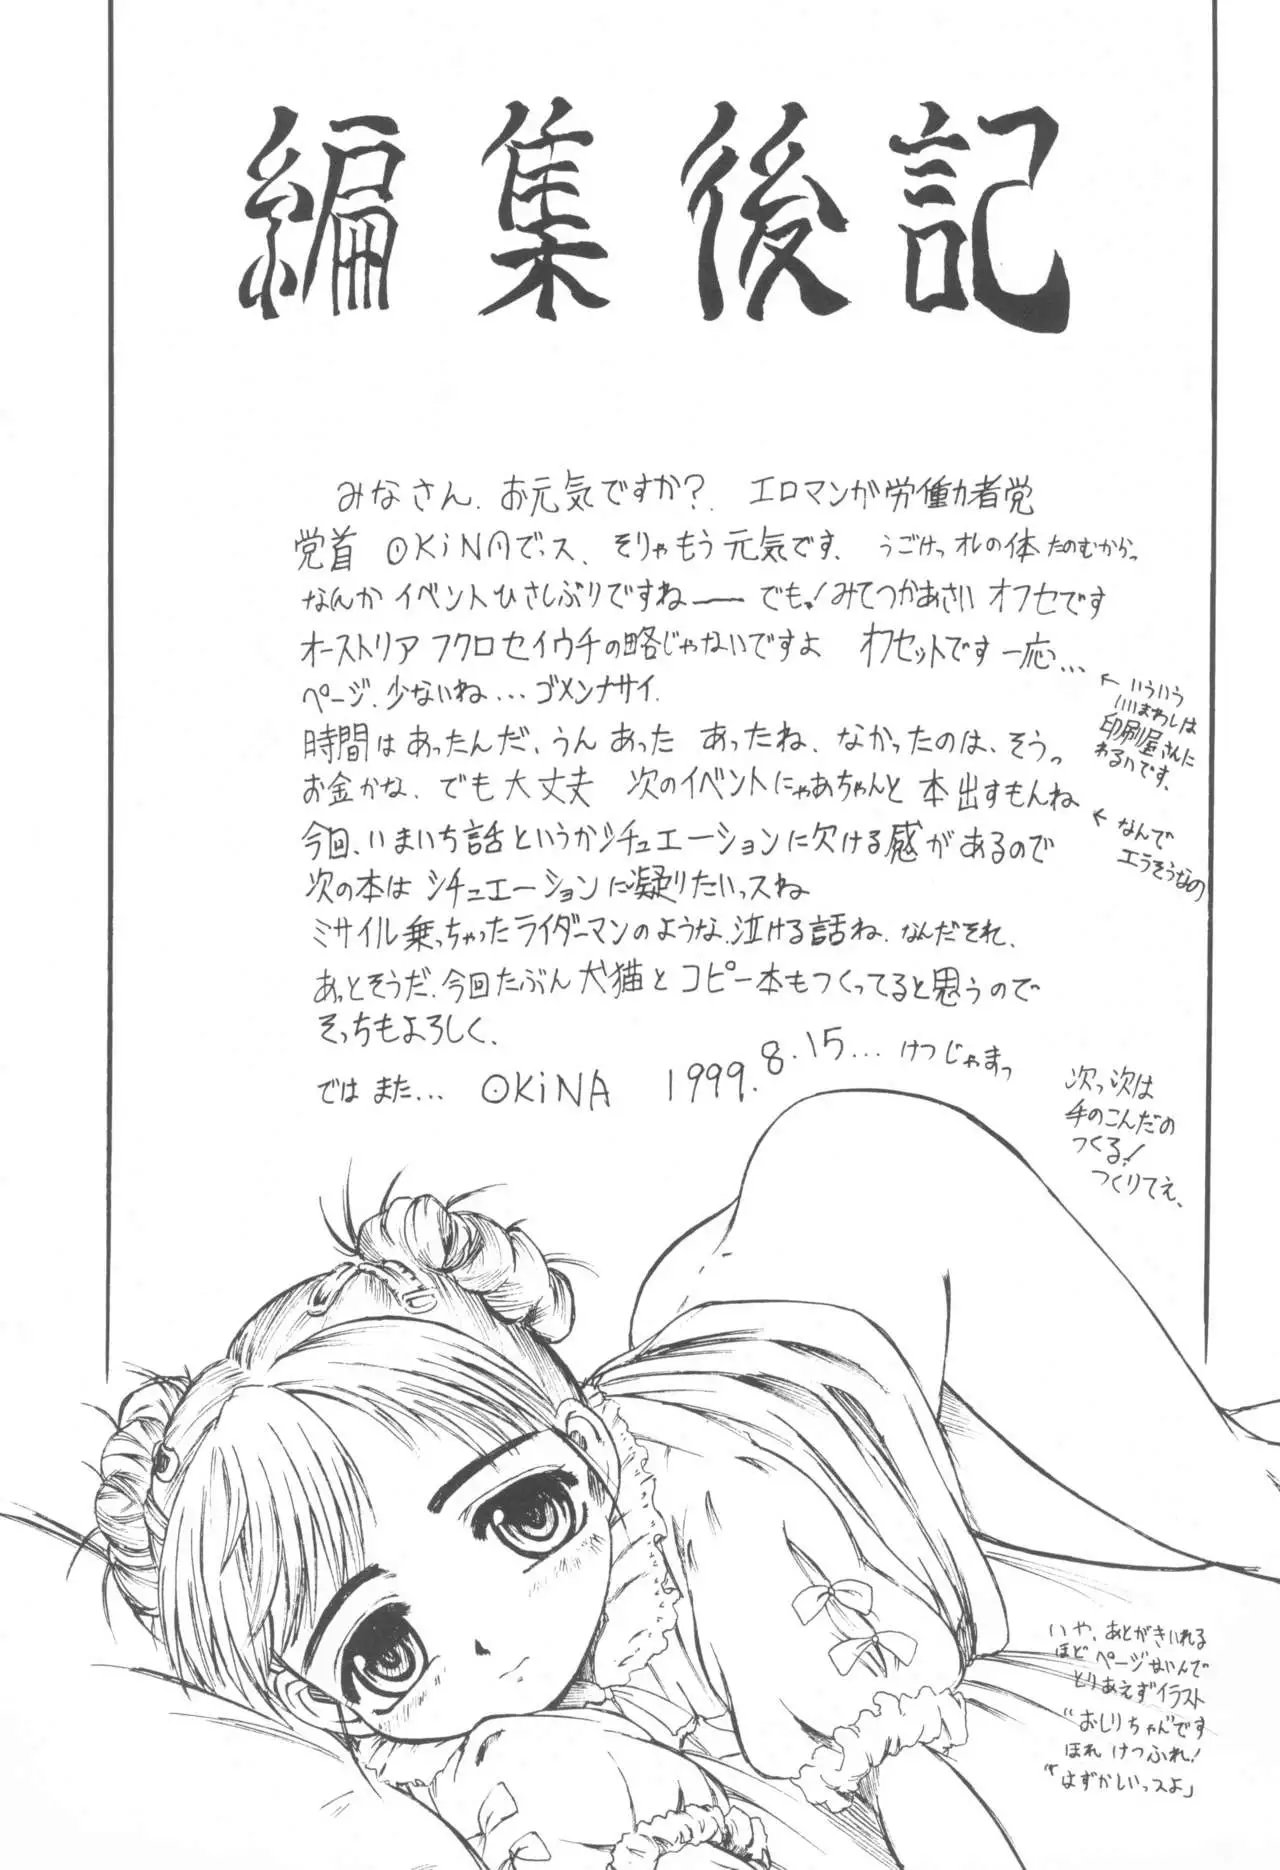 編集後記
みなさん、お元気ですか? エロマンガ労働力者党
党首 OKiNAでっス、そりゃもう元気です、うごけっオレの体 たのむからっ
なんか イベントひさしぶりですねーー でもっ!みてつかあさい オフセです
オーストリア フクロセイウチの略じゃないですよ オフセットです 一応…
ページ、少ないね…ゴメンナサイ、
←いういう
いいまわしは
印刷屋さんに
わるいです、
時間は あったんだ、うん あった あったね、なかったのは、そうっ
お金かな、でも大丈夫 次のイベントにゃあちゃんと 本出すもんね
←なんで
エラそうなの
今回、いまいち話というかシチュエーションに欠ける感があるので
次の本は シチュエーションに凝りたいっスね
ミサイル乗っちゃったライダーマンのような、泣ける話ね、なんだそれ、
あっとそうだ、今回たぶん 犬猫と コピー本もつくってると思うので
そっちもよろしく、
では また… OKiNA 1999.8.15… けつじゃまっ
次っ次は
手のこんだの
つくる!
つくりてえ、
いや、あとがきいれる
ほど ページないんで
とりあえずイラスト
"おしりちゃん"です
ほれ けつふれ!
「はずかしいっスよ」